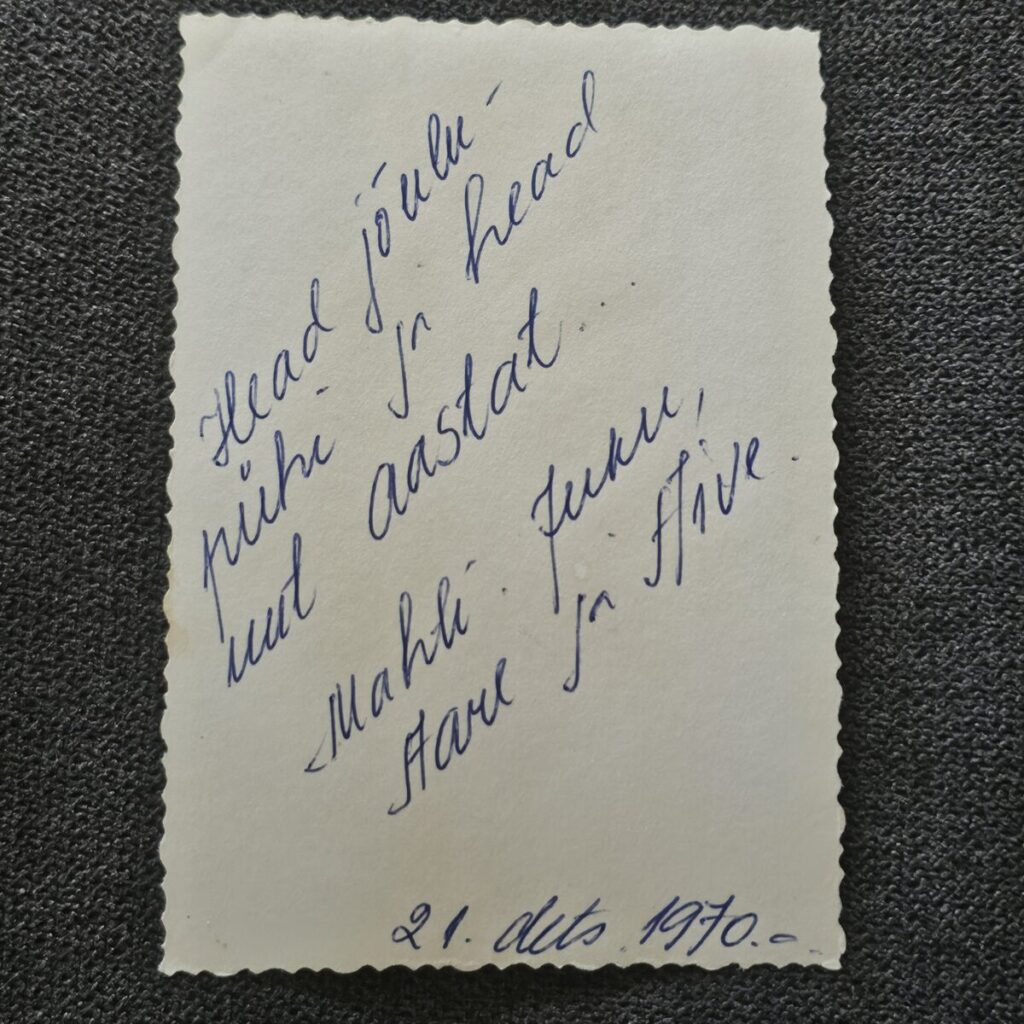 Head jõulu-
pühi ja head
uut aastat.
Mahli. Juku,
Aare ja Aive.
21. dets. 1970.-